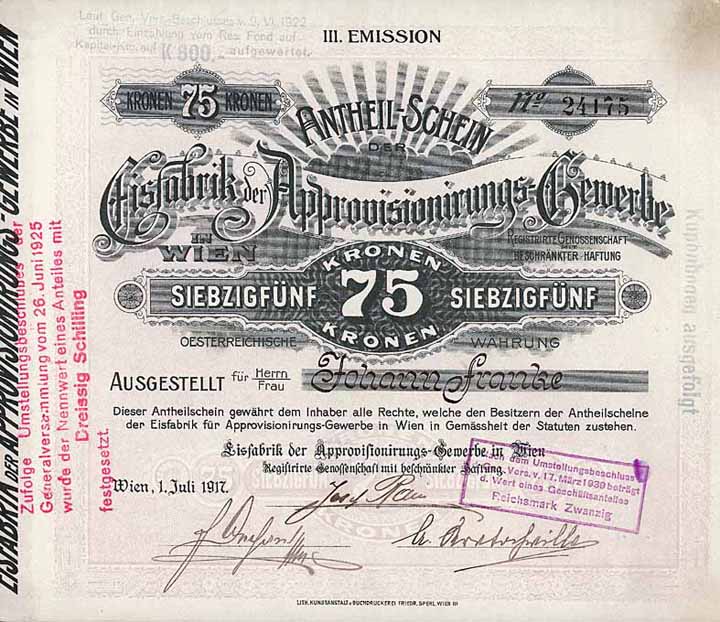 III. EMISSION
Laut Gen. Vers.-Beschlusses v. 9. VI. 1922
durch Einzahlung vom Res. Fond auf
Kapital-Kto. auf K 800.— aufgewertet.
KRONEN 75 KRONEN
No 24175
ANTHEIL-SCHEIN
DER
Eisfabrik der Approvisionirungs-Gewerbe
IN
WIEN
REGISTRIRTE GENOSSENSCHAFT
MIT
BESCHRÄNKTER HAFTUNG
KRONEN
SIEBZIGFÜNF 75 SIEBZIGFÜNF
KRONEN
OESTERREICHISCHE WÄHRUNG
AUSGESTELLT für Herrn
Frau
Johann Franke
Dieser Antheilschein gewährt dem Inhaber alle Rechte, welche den Besitzern der Antheilscheine
der Eisfabrik für Approvisionirungs-Gewerbe in Wien in Gemässheit der Statuten zustehen.
Eisfabrik der Approvisionirungs-Gewerbe in Wien
Registrirte Genossenschaft mit beschränkter Haftung.
Wien, 1. Juli 1917.
KRONEN
SIEBZIGFÜNF 75 SIEBZIGFÜNF
KRONEN
75
dem Umstellungsbeschluss
Vers. v. 17. März 1939 beträgt
d. Wert eines Geschäftsanteiles
Reichsmark Zwanzig
EISFABRIK DER APPROVISIONIRUNGS-GEWERBE IN WIEN
Zufolge Umstellungsbeschlußes der
Generalversammlung vom 26. Juni 1925
wurde der Nennwert eines Anteiles mit
Dreissig Schilling
festgesetzt.
Kuponbogen ausgefolgt
LITH. KUNSTANSTALT u. BUCHDRUCKEREI FRIEDR. SPERL, WIEN III